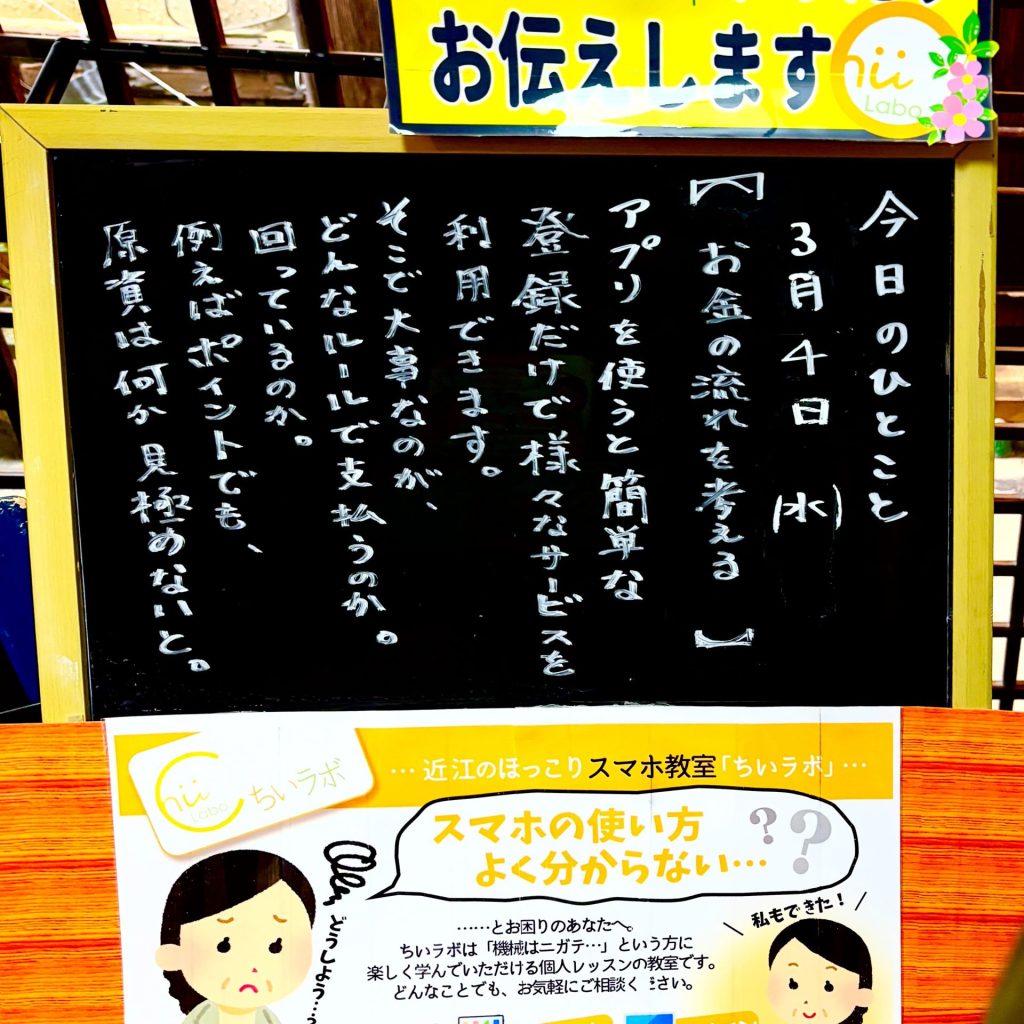 お伝えします
Chii
Labo
今日のひとこと
3月4日(水)
【お金の流れを考える】
アプリを使うと簡単な
登録だけで様々なサービスを
利用できます。
そこで大事なのが、
どんなルールで支払うのか。
回っているのか。
例えばポイントでも、
原資は何か見極めないと。
…近江のほっこりスマホ教室「ちいラボ」…
Chii
Labo
ちいラボ
スマホの使い方
よく分からない…
??
どうしよう…
私もできた!
……とお困りのあなたへ。
ちいラボは「機械はニガテ…」という方に
楽しく学んでいただける個人レッスンの教室です。
どんなことでも、お気軽にご相談ください。